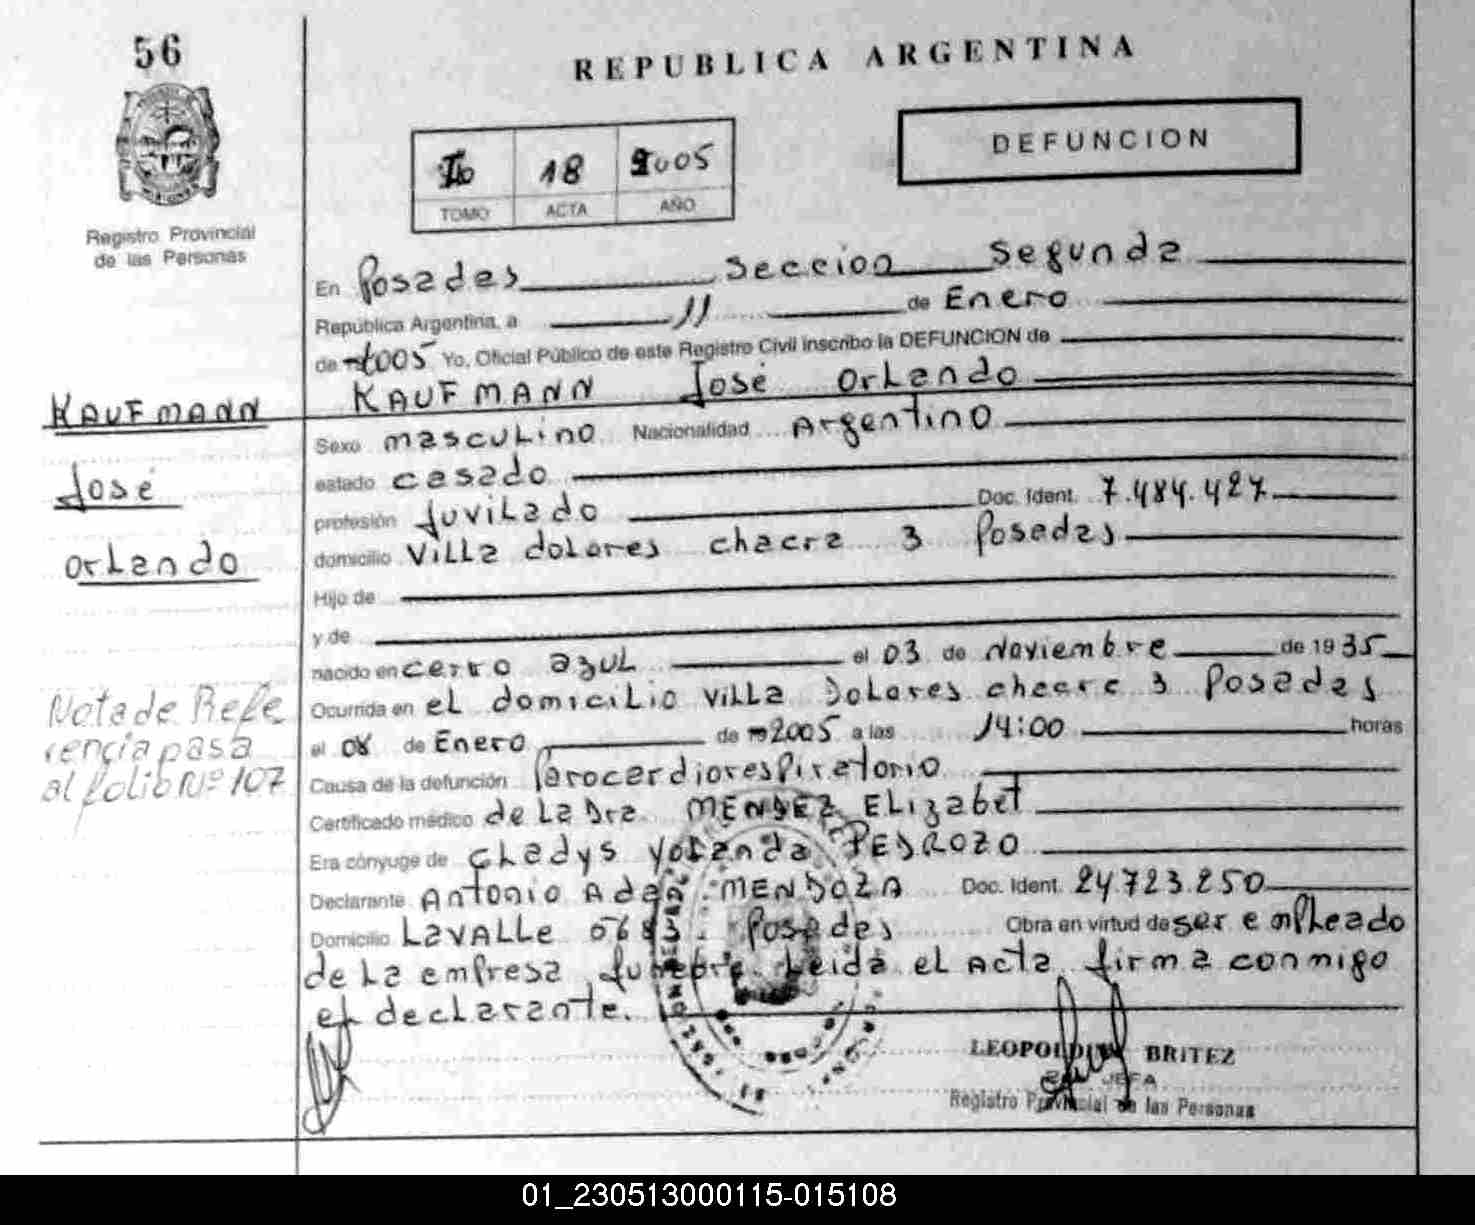 56
REPUBLICA ARGENTINA
DEFUNCION
18 2005
TOMO ACTA AÑO
Registro Provincial
de las Personas
En Posadas Seccion Segunda
República Argentina, a 11 de Enero
de 2005 Yo, Oficial Público de este Registro Civil inscribo la DEFUNCION de
KAUFMANN José Orlando
KAUFMANN
José
Orlando
Sexo masculino Nacionalidad Argentino
estado casado
profesión Juvilado Doc. Ident. 7.484.427
domicilio Villa dolores chacra 3 Posadas
Hijo de
y de
nacido en cerro azul el 03 de Noviembre de 1935
Nota de Refe
rencia pasa
al folio Nº 107
Ocurrida en el domicilio Villa Dolores chacra 3 Posadas
el 08 de Enero de 2005 a las 14:00 horas
Causa de la defunción Parocardiorespiratorio
Certificado médico de la Dra. MENDEZ Elizabet
Era cónyuge de Gladys Yolanda PEDROZO
Declarante Antonio MENDOZA Doc. Ident. 24.723.250
Domicilio Lavalle 0683 Posadas Obra en virtud de ser empleado
de la empresa funebre. Leida el Acta, firma conmigo
el declarante.
BRITEZ
JEFA
Registro Provincial de las Personas
01_230513000115-015108